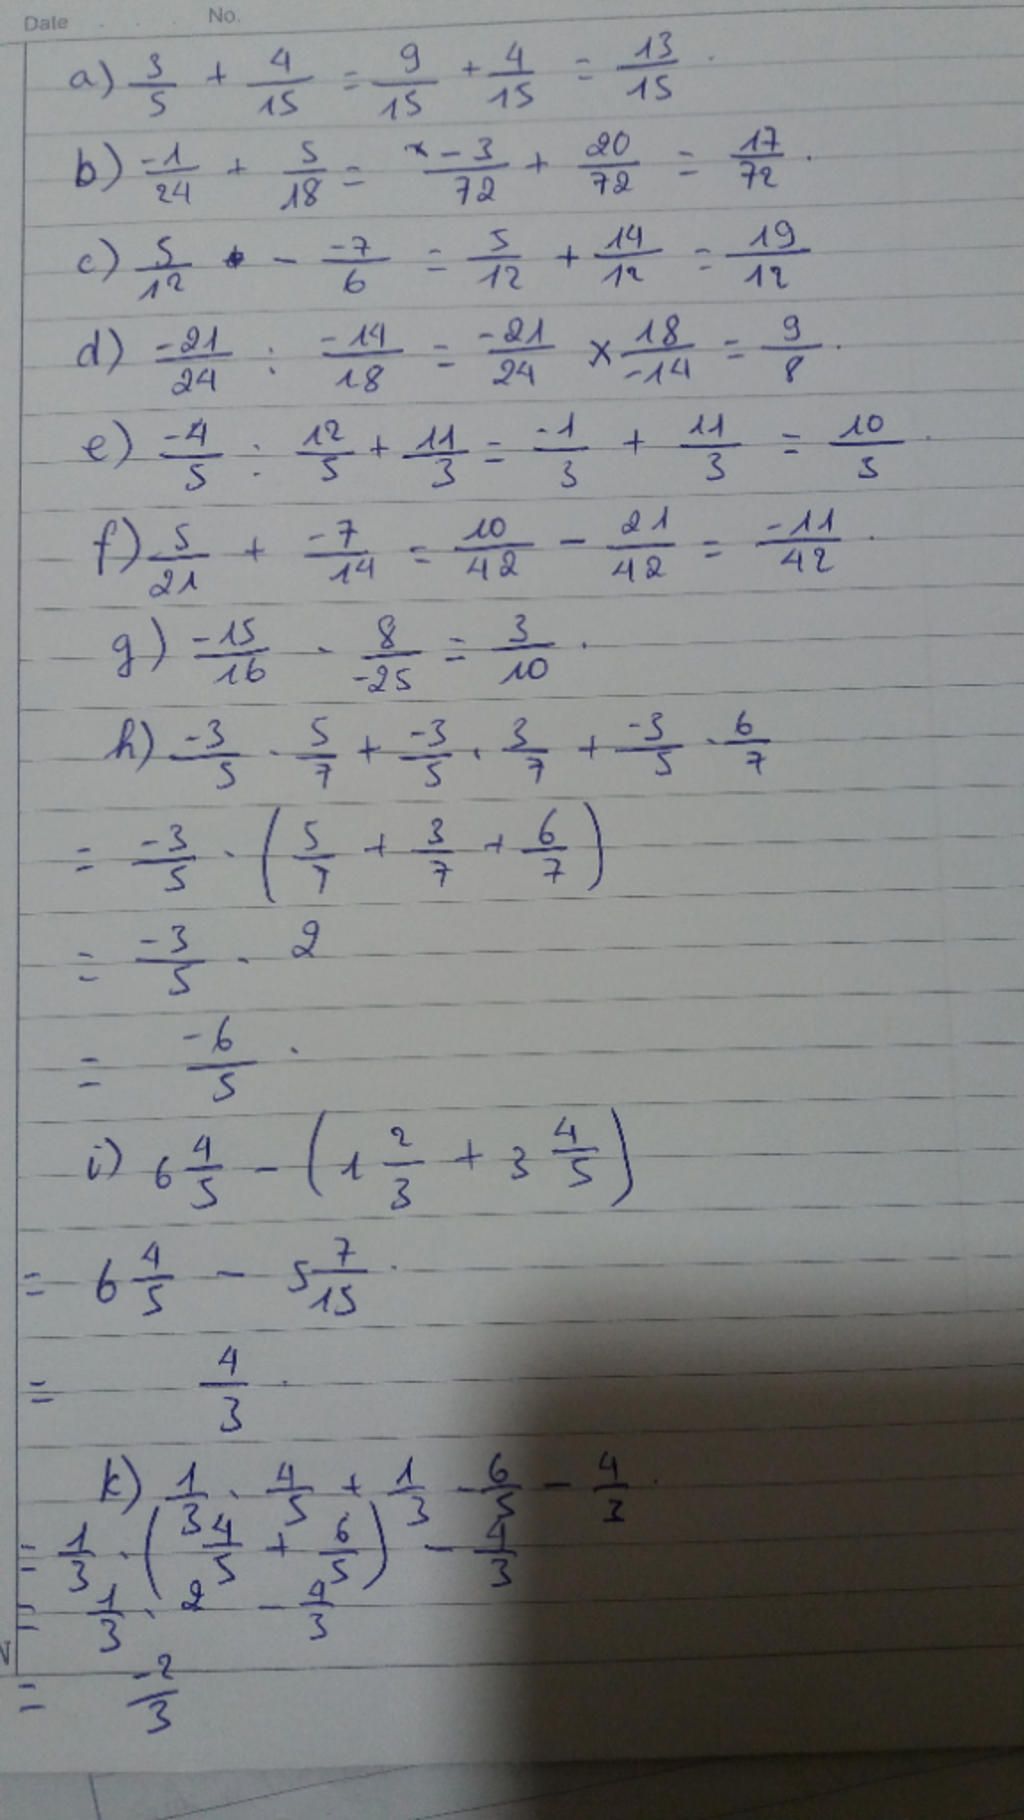 Date No.
a) 3/5 + 4/15 = 9/15 + 4/15 = 13/15.
b) -1/24 + 5/18 = -3/72 + 20/72 = 17/72.
c) 5/12 - -7/6 = 5/12 + 14/12 = 19/12
d) -21/24 : -14/18 = -21/24 x 18/-14 = 9/8.
e) -4/5 : 12/5 + 11/3 = -1/3 + 11/3 = 10/3.
f) 5/21 + -7/14 = 10/42 - 21/42 = -11/42.
g) -15/16 . 8/-25 = 3/10.
h) -3/5 . 5/7 + -3/5 . 3/7 + -3/5 . 6/7
= -3/5 . (5/7 + 3/7 + 6/7)
= -3/5 . 2
= -6/5.
i) 6 4/5 - (1 2/3 + 3 4/5)
= 6 4/5 - 5 7/15.
= 4/3.
k) 1/3 . 4/5 + 1/3 . 6/5 - 4/3.
= 1/3 . (4/5 + 6/5) - 4/3
= 1/3 . 2 - 4/3
= -2/3